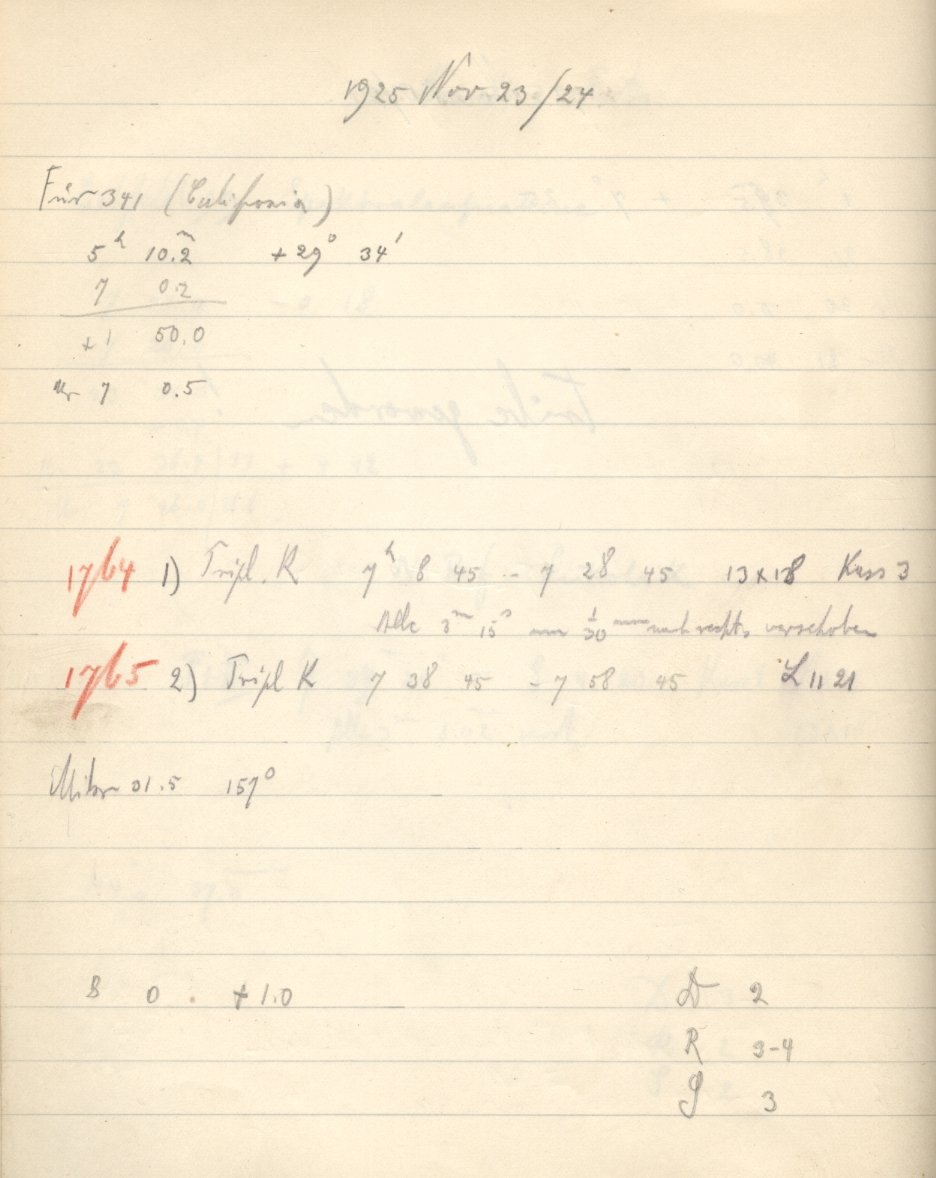 1925 Nov 23/24
Für 341 (California)
5ʰ 10.2ᵐ +29° 34'
7 0.2
+1 50.0
Uhr 7 0.5
1764 1) Tripl. K 7ʰ 8 45 – 7 28 45 13x18 Kass 3
Alle 3ᵐ 15ˢ um 1/30 mm nach rechts verschoben
1765 2) Tripl K 7 38 45 – 7 58 45 L 11 21
Mikr 31.5 157°
8 0 . +1.0 D 2
R 3-4
S 3